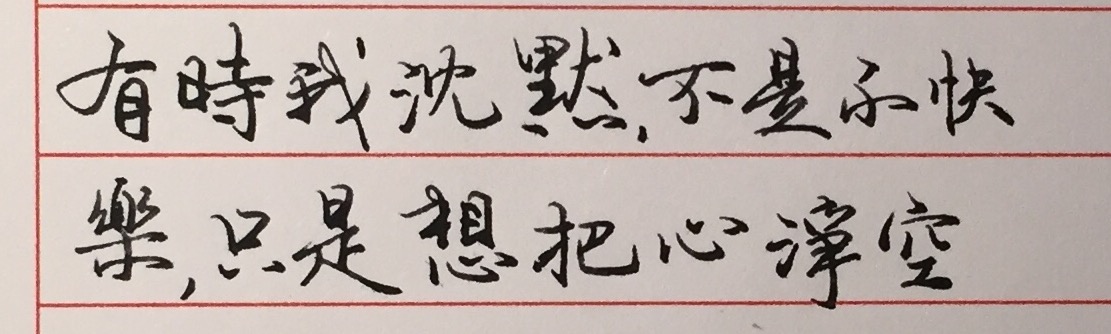 有時我沈默,不是不快
樂,只是想把心淨空